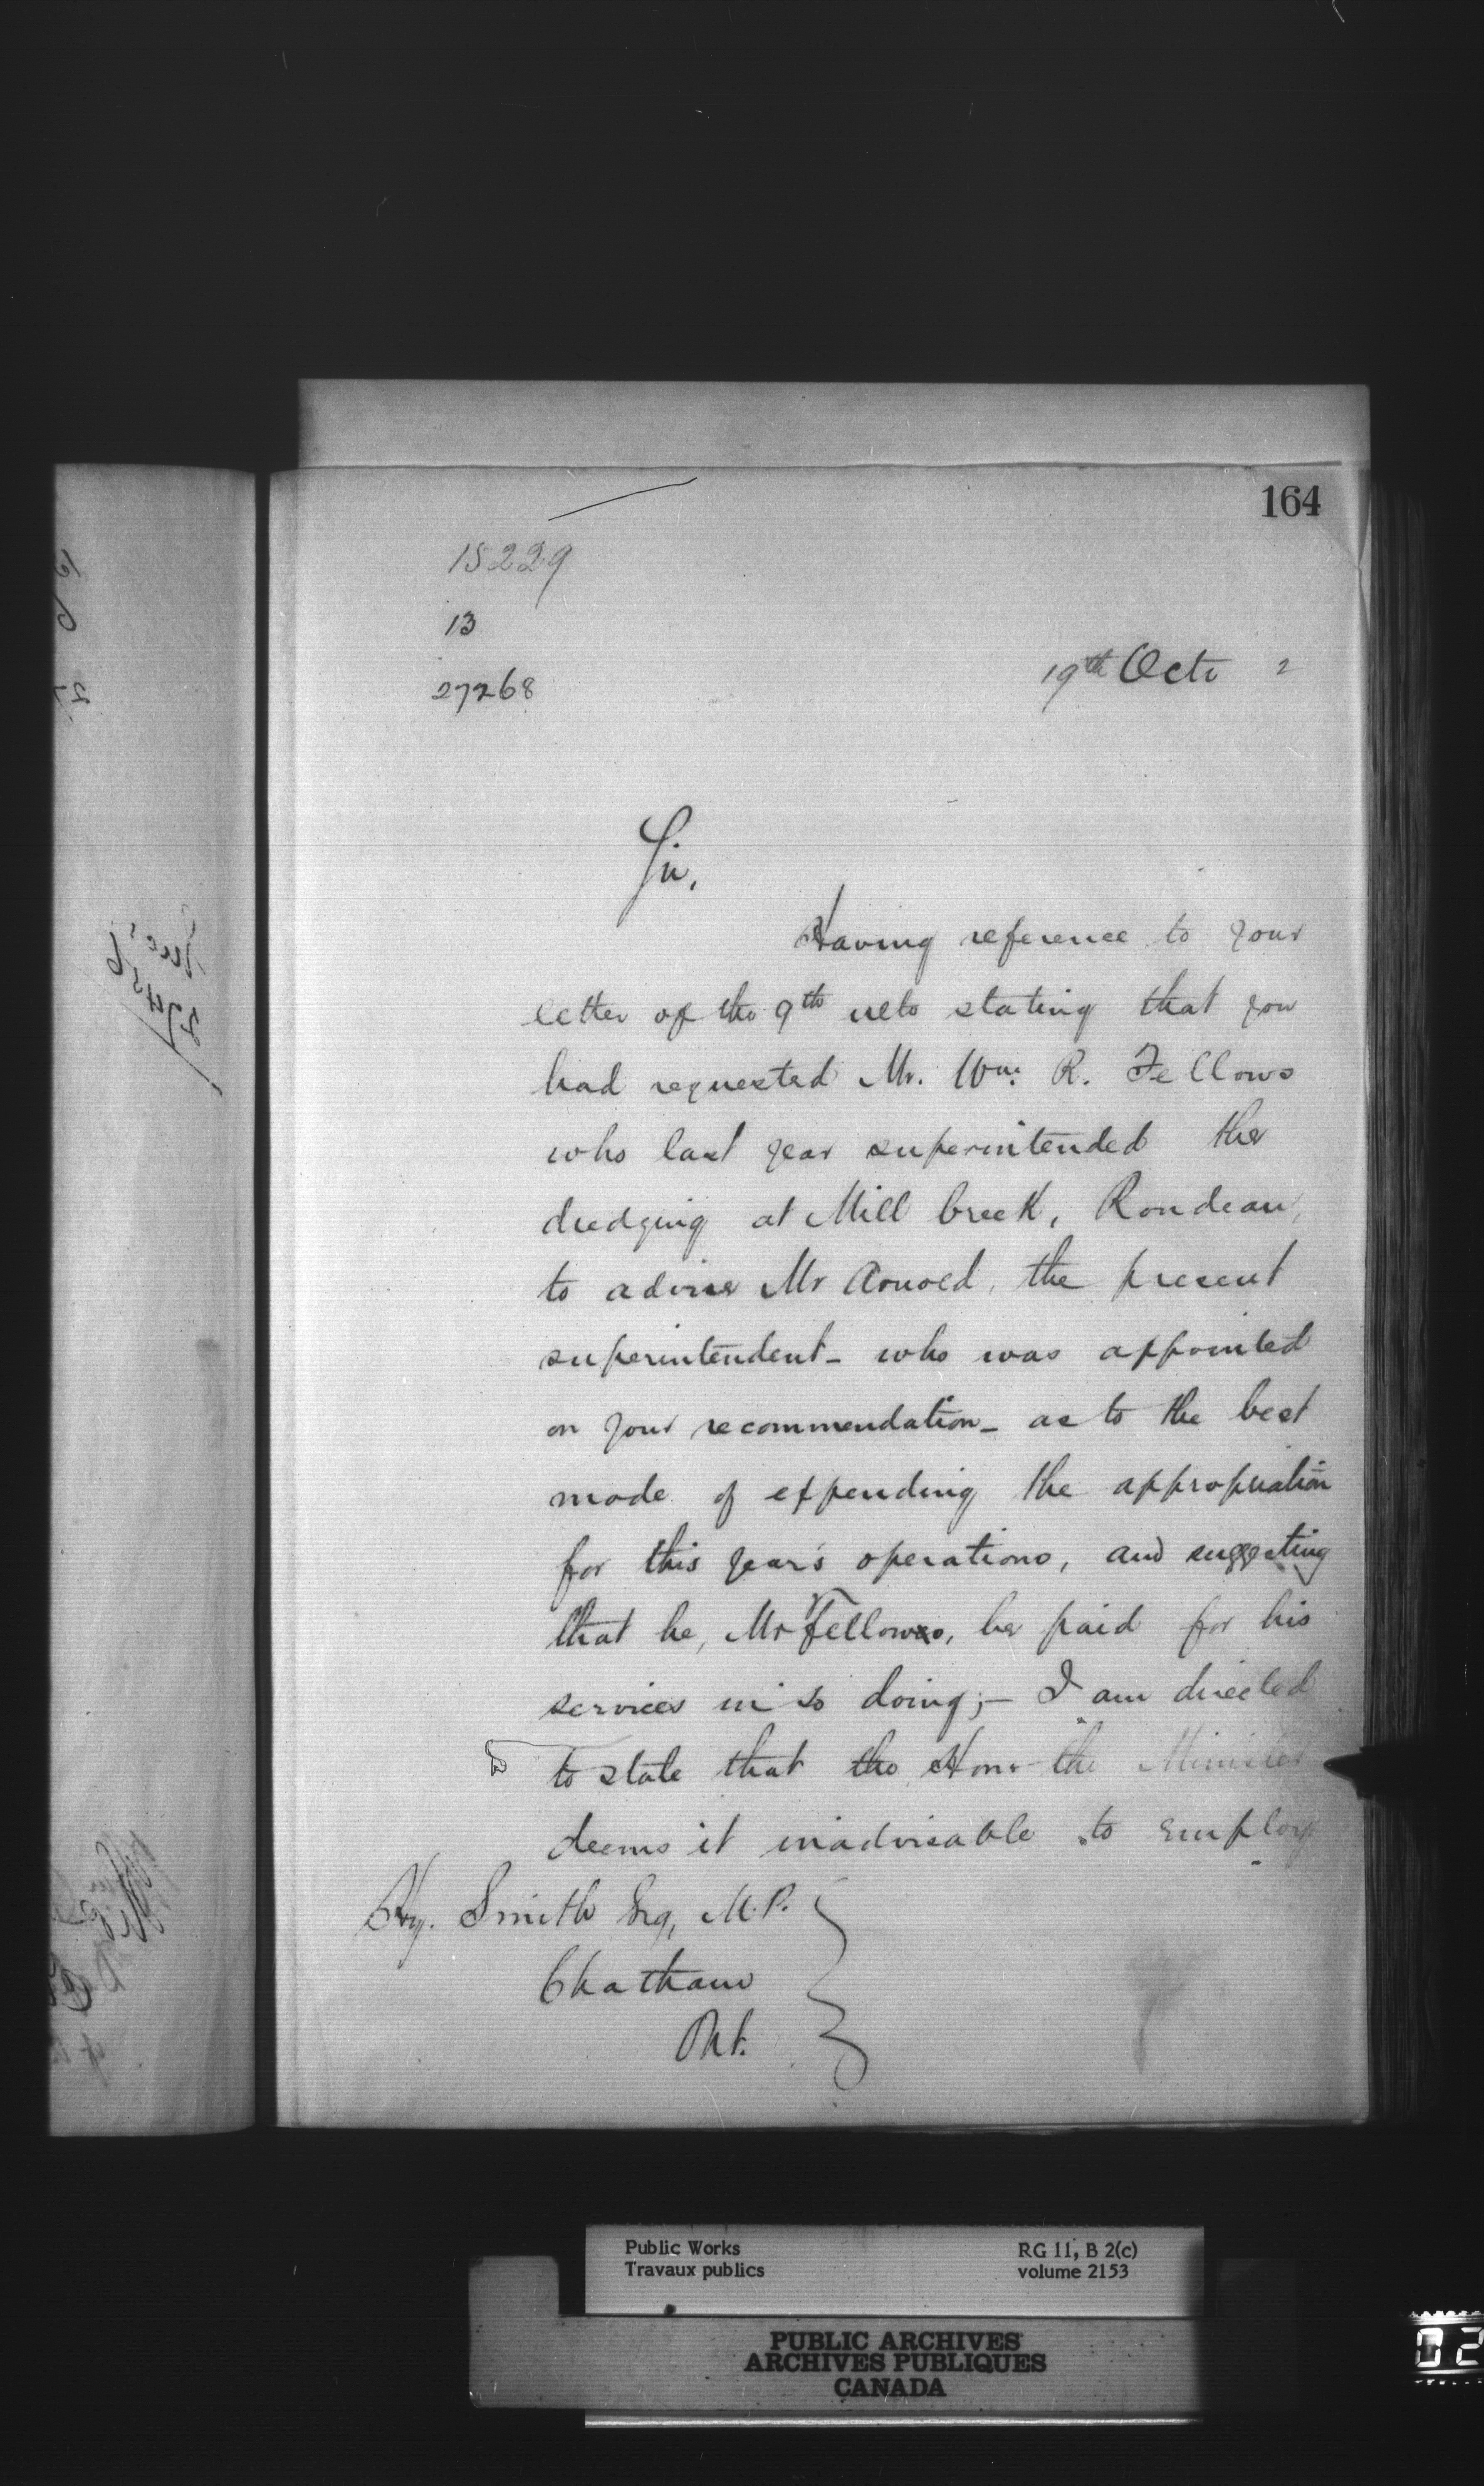 164
15229
13
27268
19th Octo 2
Sir,
Having reference to your
letter of the 9th ulto stating that you
had requested Mr. Wm. R. Fellows
who last year superintended the
dredging at Mill Creek, Rondeau,
to advise Mr Arnold, the present
superintendent - who was appointed
on your recommendation - as to the best
mode of expending the appropriation
for this year's operations, and suggesting
that he, Mr Fellows, be paid for his
services in so doing; - I am directed
to state that the Honr the Minister
deems it inadvisable to employ
Hy. Smith Esq, M.P.
Chatham
Ont.
Public Works
Travaux publics
RG 11, B 2(c)
volume 2153
PUBLIC ARCHIVES
ARCHIVES PUBLIQUES
CANADA
02